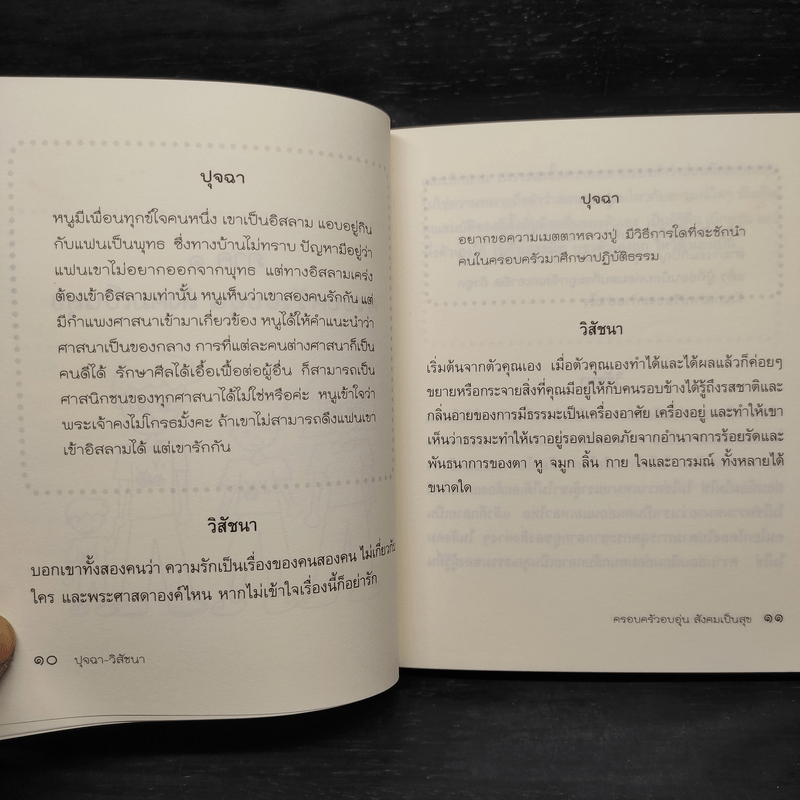 ปุจฉา
หนูมีเพื่อนทุกข์ใจคนหนึ่ง เขาเป็นอิสลาม แอบอยู่กิน
กับแฟนเป็นพุทธ ซึ่งทางบ้านไม่ทราบ ปัญหามีอยู่ว่า
แฟนเขาไม่อยากออกจากพุทธ แต่ทางอิสลามเคร่ง
ต้องเข้าอิสลามเท่านั้น หนูเห็นว่าเขาสองคนรักกัน แต่
มีกำแพงศาสนาเข้ามาเกี่ยวข้อง หนูได้ให้คำแนะนำว่า
ศาสนาเป็นของกลาง การที่แต่ละคนต่างศาสนาก็เป็น
คนดีได้ รักษาศีลได้เอื้อเฟื้อต่อผู้อื่น ก็สามารถเป็น
ศาสนิกชนของทุกศาสนาได้ไม่ใช่หรือค่ะ หนูเข้าใจว่า
พระเจ้าคงไม่โกรธมั้งคะ ถ้าเขาไม่สามารถดึงแฟนเขา
เข้าอิสลามได้ แต่เขารักกัน
วิสัชนา
บอกเขาทั้งสองคนว่า ความรักเป็นเรื่องของคนสองคน ไม่เกี่ยวกับ
ใคร และพระศาสดาองค์ไหน หากไม่เข้าใจเรื่องนี้ก็อย่ารัก
๑๐ ปุจฉา-วิสัชนา
ปุจฉา
อยากขอความเมตตาหลวงปู่ มีวิธีการใดที่จะชักนำ
คนในครอบครัวมาศึกษาปฏิบัติธรรม
วิสัชนา
เริ่มต้นจากตัวคุณเอง เมื่อตัวคุณเองทำได้และได้ผลแล้วก็ค่อยๆ
ขยายหรือกระจายสิ่งที่คุณมีอยู่ให้กับคนรอบข้างได้รู้ถึงรสชาติและ
กลิ่นอายของการมีธรรมะเป็นเครื่องอาศัย เครื่องอยู่ และทำให้เขา
เห็นว่าธรรมะทำให้เราอยู่รอดปลอดภัยจากอำนาจการร้อยรัดและ
พันธนาการของตา หู จมูก ลิ้น กาย ใจและอารมณ์ ทั้งหลายได้
ขนาดใด
ครอบครัวอบอุ่น สังคมเป็นสุข ๑๑